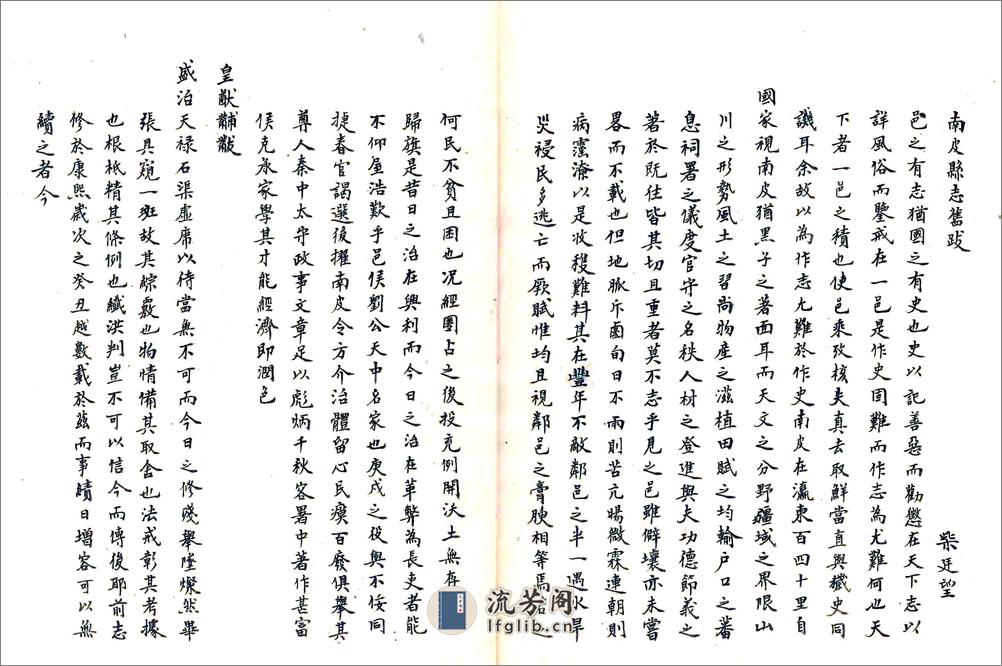 南皮縣志舊跋
柴廷望
邑之有志猶國之有史也史以記善惡而勸懲在天下志以
詳風俗而鑒戒在一邑是作史固難而作志為尤難何也天
下者一邑之積也使邑乘攷核失真去取鮮當直與穢史同
譏耳余故以為作志尤難於作史南皮在瀛東百四十里自
國家視南皮猶黑子之著面耳而天文之分野疆域之界限山
川之形勢風土之習尚物産之滋植田賦之均輸户口之蕃
息祠署之儀度官守之名秩人材之登進與夫功德節義之
著於既往皆其切且重者莫不志乎見之邑雖僻壤亦未嘗
畧而不載也但地脈斥鹵旬日不雨則苦亢暘微霖連朝則
病霪潦以是收穫難料其在豐年不敵鄰邑之半一遇水旱
災祲民多逃亡而厥賦惟均且視鄰邑之膏腴相等焉
何民不貧且困也况經圈占之後投充例開沃土無存
歸旗是昔日之治在興利而今日之治在革弊為長吏者能
不仰屋浩歎乎邑侯劉公天中名家也庚戌之役與不佞同
捷春官謁選後擢南皮令方介治體留心民瘼百廢俱舉其
尊人秦中太守政事文章足以彪炳千秋客署中著作甚富
侯克承家學其才能經濟即潤色
皇猷黼黻
盛治天禄石渠虛席以待當無不可而今日之修殘舉墜燦然畢
張具窺一斑故其綜覈也物情備其取舍也法戒彰其考據
也根柢精其條例也纖洪判豈不可以信今而傳後耶前志
修於康熙歲次之癸丑越數載於茲而事績日增容可以無
續之者今
流芳阁
lfglib.cn